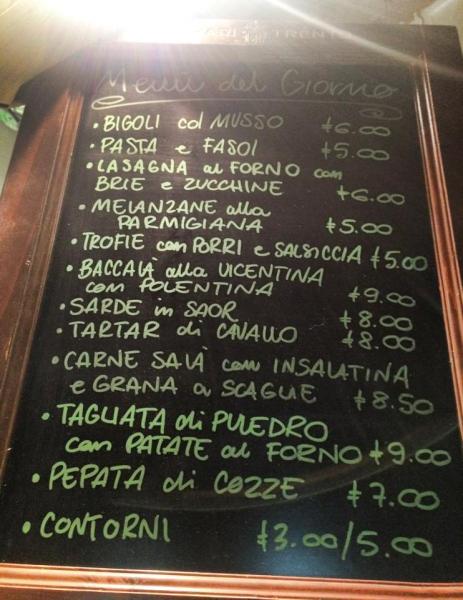 TRENTO
Menù del Giorno
• BIGOLI col MUSSO €6.00
• PASTA e FASOI €5.00
• LASAGNA al FORNO con
BRIE e ZUCCHINE €6.00
• MELANZANE alla
PARMIGIANA €5.00
• TROFIE con PORRI e SALSICCIA €5.00
• BACCALÀ alla VICENTINA
con POLENTINA €9.00
• SARDE in SAOR €8.00
• TARTAR di CAVALLO €8.00
• CARNE SALÀ con INSALATINA
e GRANA a SCAGLIE €8.50
• TAGLIATA di PULEDRO
con PATATE al FORNO €9.00
• PEPATA di COZZE €7.00
• CONTORNI €3.00/5.00